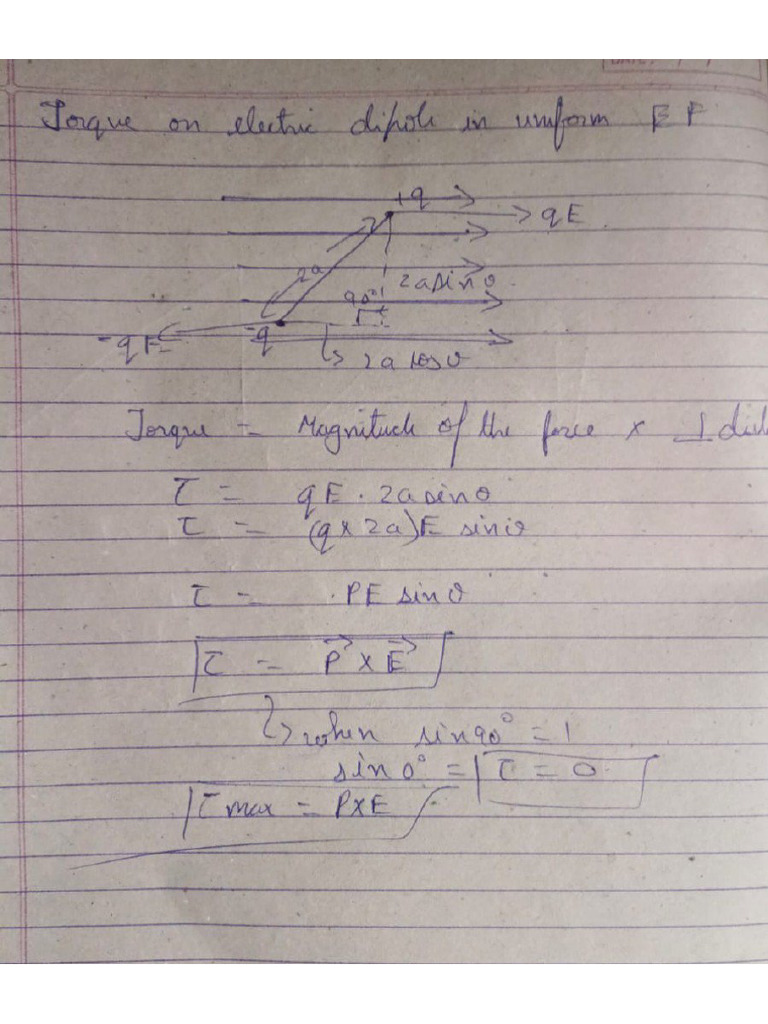 Torque on electric dipole in uniform E F
+q
qE
2a
2a sin θ
90°
-q
-qE
2a cos θ
Torque = Magnitude of the force × ⊥
τ = qE · 2a sin θ
τ = (q × 2a) E sin θ
τ = PE sin θ
τ = P⃗ × E⃗
when sin 90° = 1
sin 0° = τ = 0
τ max = P×E